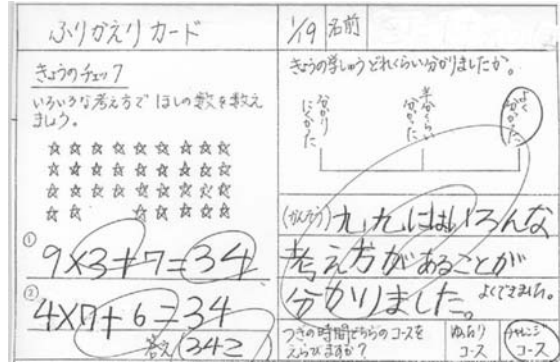 ふりかえりカード
1/19 名前
きょうのチェック
いろいろな考え方で ほしの数を数え
ましょう。
① 9×3+7=34
② 4×7+6=34
答え(34こ)
きょうの学しゅうどれくらい分かりましたか。
分かりにくかった
半分くらい分かった
よく分かった
(かんそう)九九にはいろんな
考え方があることが
分かりました。
よくできました。
つぎの時間どちらのコースを
えらびますか?
ゆったりコース
チャレンジコース